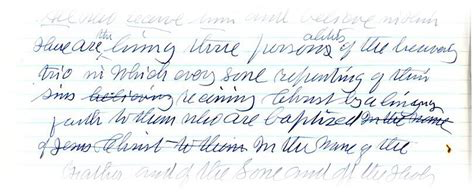 receive him and believe in him
are the living three persons alities of the heavenly
trio in which every sone repenting of their
sins believing receiving Christ by a living
faith to them who are baptized in the name
of Jesus Christ to them In the name of the
Father and of the Sone and of the Holy